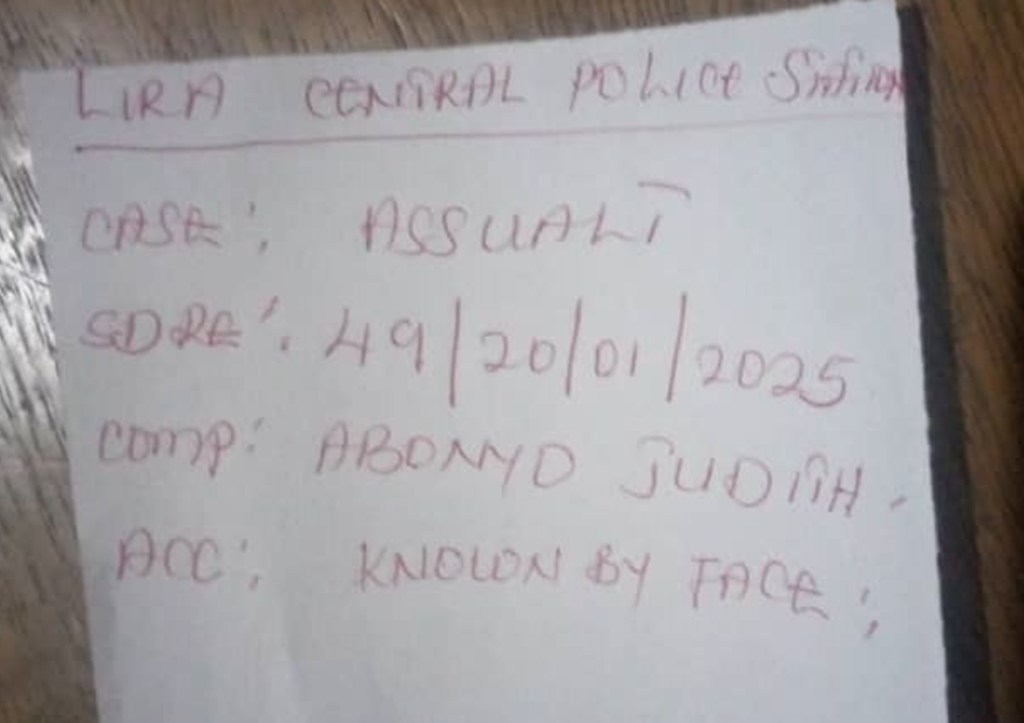 LIRA CENTRAL POLICE STATION
CASE: ASSUALT
SDRE: 49/20/01/2025
COMP: ABONYO JUDITH.
ACC: KNOWN BY FACE;